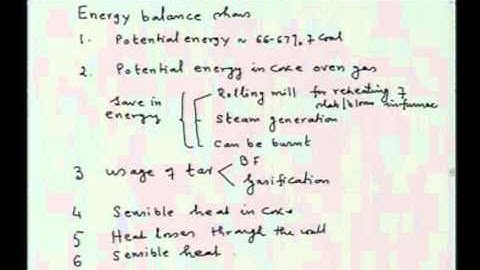 Energy balance shows
1. Potential energy ~ 66-67% of coal
2. Potential energy in coke oven gas
Save in energy
Rolling mill for reheating of slab/bloom in furnace
Steam generation
Can be burnt
3 usage of tar
BF
Gasification
4 Sensible heat in coke
5 Heat losses through the wall
6 Sensible heat.